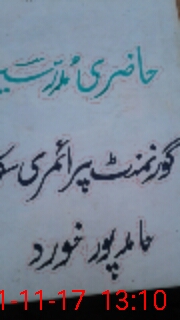 حاضری مدرسین
گورنمنٹ پرائمری
حامد پور خورد
1-11-17 13:10